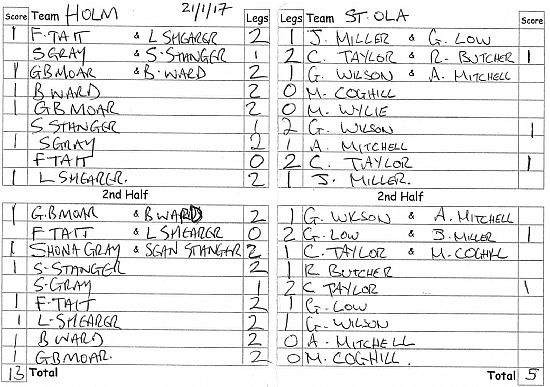 Score Team HOLM 21/1/17 Legs Legs Team ST. OLA Score
1 F. TAIT & L SHEARER 2 1 J. MILLER & G. LOW
S GRAY & S. STANGER 1 2 C. TAYLOR & R. BUTCHER 1
1 GB MOAR & B. WARD 2 1 G. WILSON & A. MITCHELL
1 B WARD 2 0 M. COGHILL
1 GB MOAR 2 0 M. WYLIE
S STANGER 1 2 G. WILSON 1
1 S GRAY 2 1 A. MITCHELL
F TAIT 0 2 C. TAYLOR 1
1 L SHEARER. 2 1 J. MILLER.
2nd Half 2nd Half
1 G.B MOAR & B WARD 2 1 G. WILSON & A. MITCHELL
F TAIT & L SHEARER 0 2 G. LOW & J. MILLER 1
1 SHONA GRAY & SEAN STANGER 2 1 C. TAYLOR & M. COGHILL
1 S. STANGER 2 1 R BUTCHER
S. GRAY 1 2 C TAYLOR 1
1 F. TAIT 2 1 G. LOW
1 L. SHEARER 2 1 G. WILSON
1 B WARD 2 0 A. MITCHELL
1 GB MOAR. 2 0 M. COGHILL.
13 Total Total 5